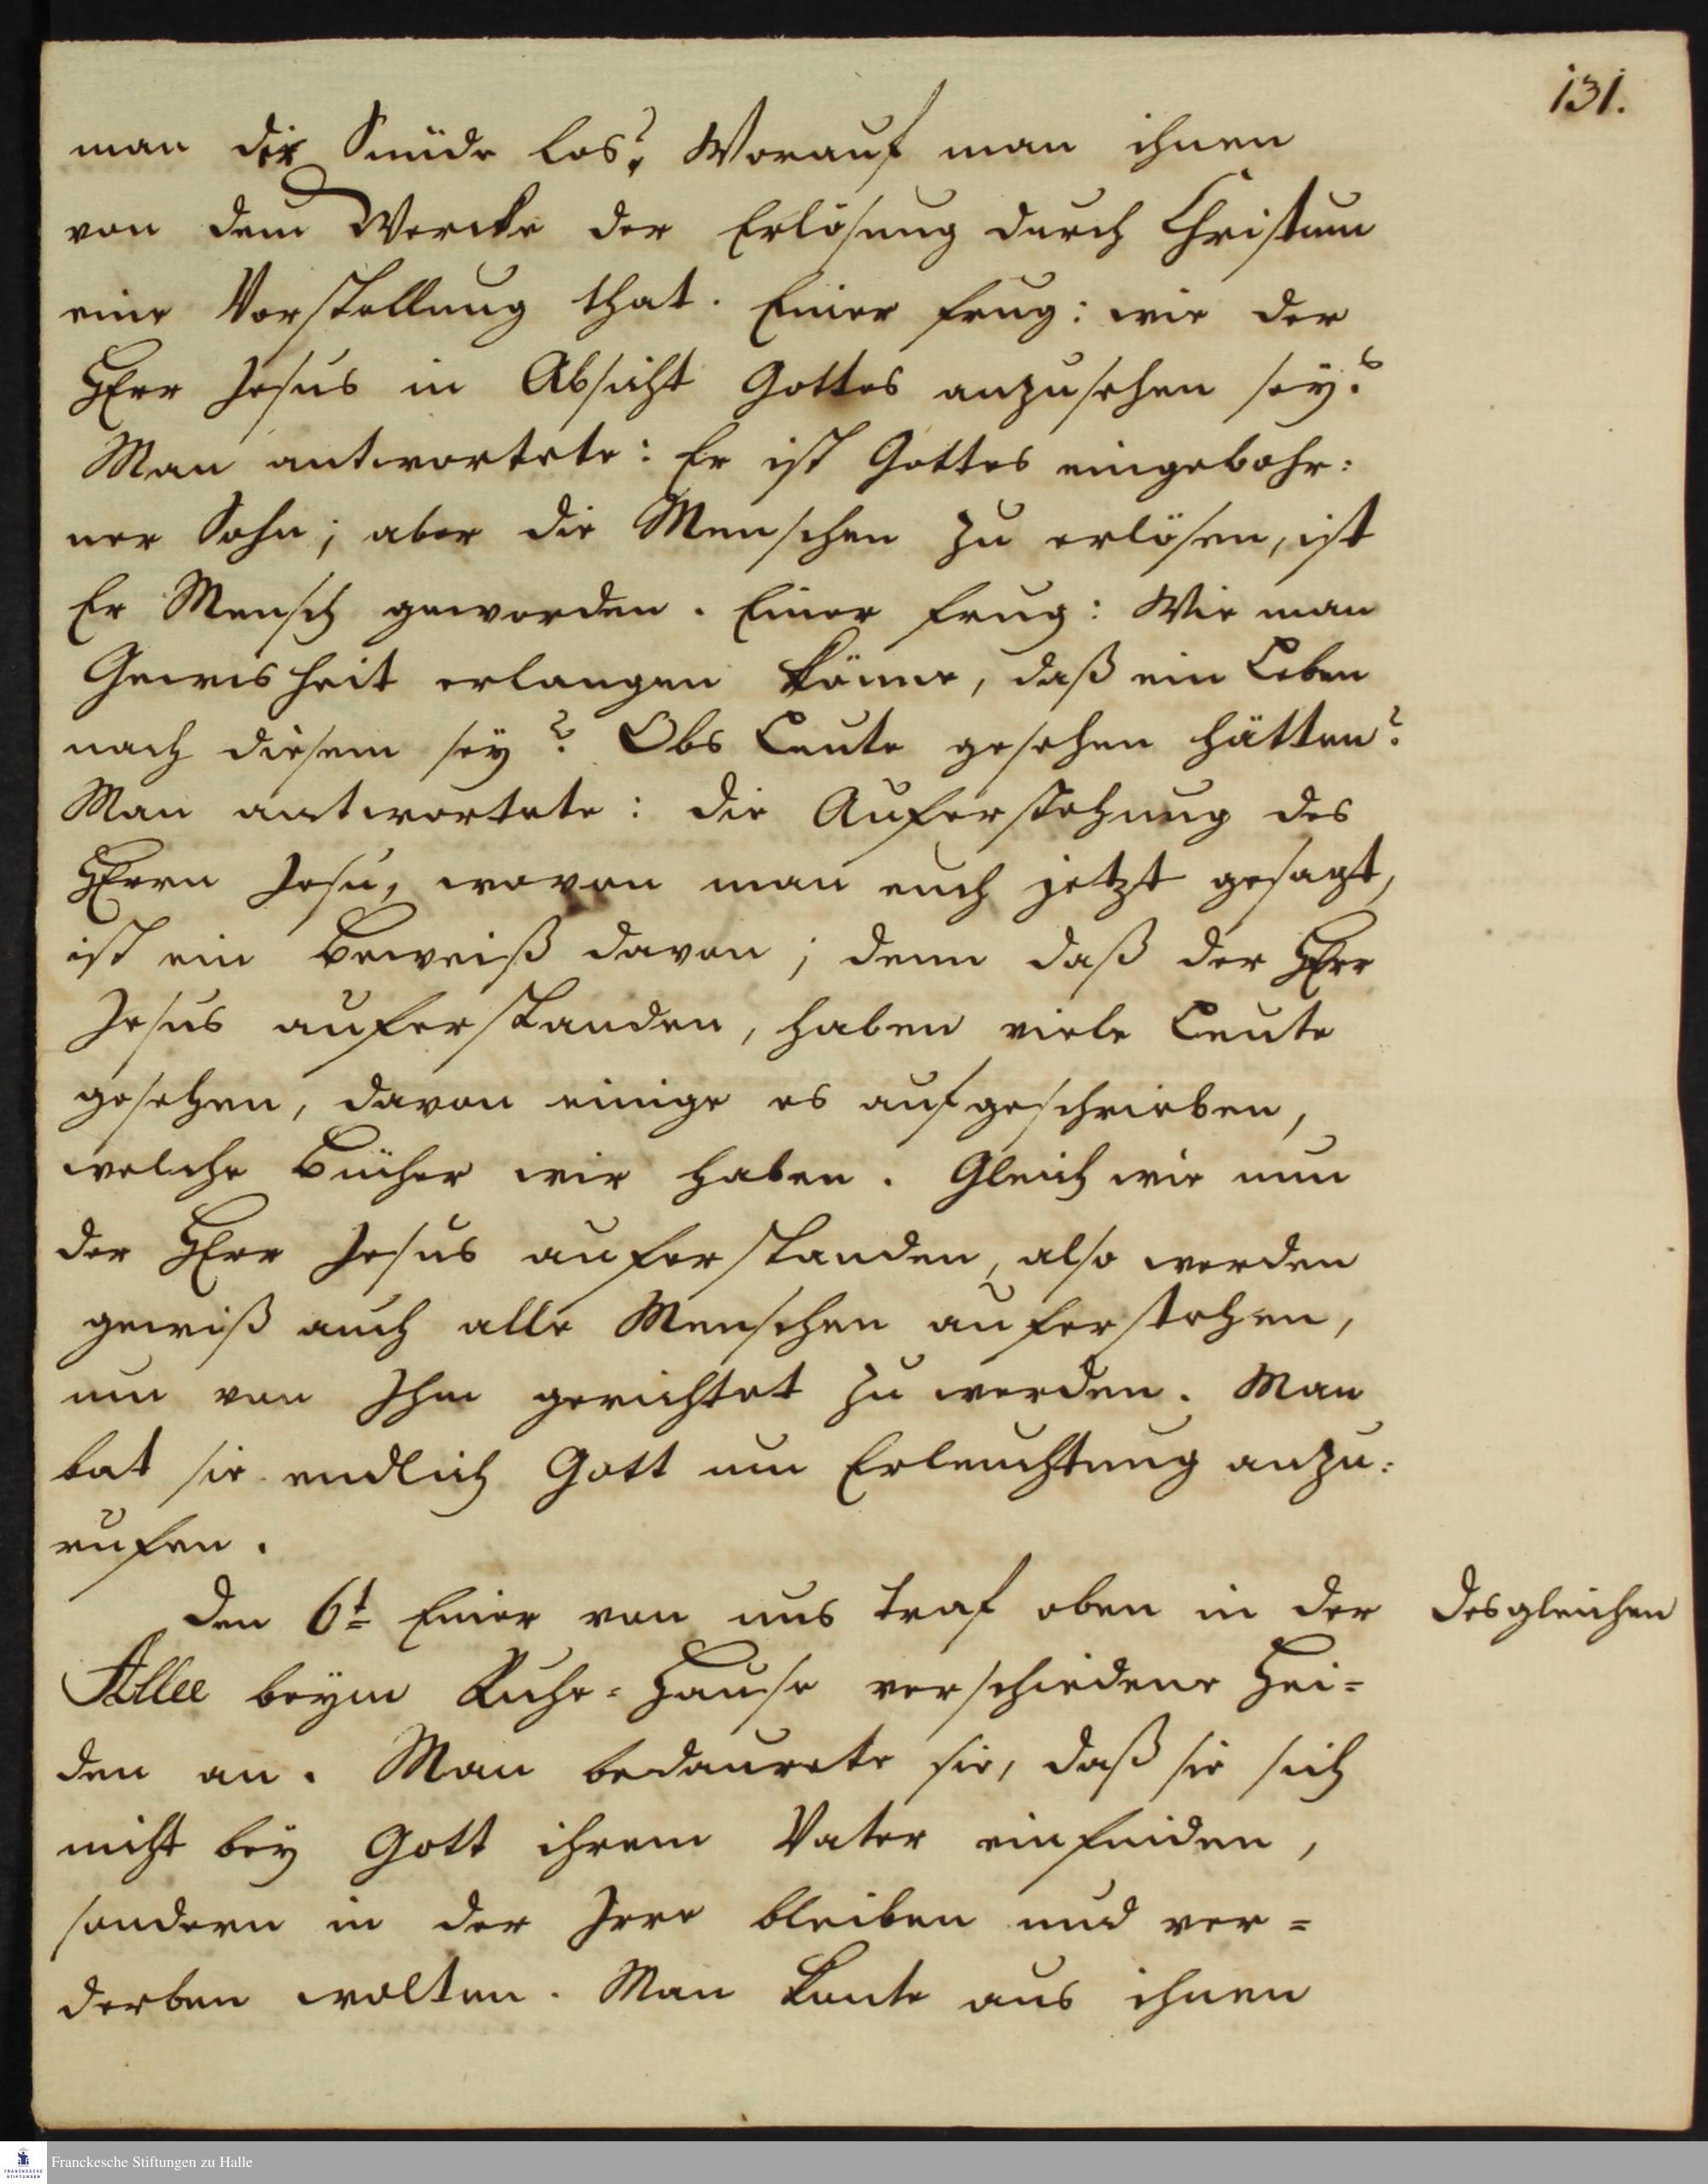 131.
man der Sünde los? Worauf man ihnen
von dem Wercke der Erlösung durch Christum
eine Vorstellung that. Einer frug: wie der
HErr Jesus in Absicht Gottes anzusehen sey?
Man antwortete: Er ist Gottes eingebohr:
ner Sohn; aber die Menschen zu erlösen, ist
Er Mensch geworden. Einer frug: Wie man
Gewisheit erlangen könne, daß ein Leben
nach diesem sey? Obs Leute gesehen hätten?
Man antwortete: die Auferstehung des
HErrn Jesu, wovon man euch jetzt gesagt,
ist ein Beweiß davon; denn daß der HErr
Jesus auferstanden, haben viele Leute
gesehen, davon einige es aufgeschrieben,
welche Bücher wir haben. Gleich wie nun
der HErr Jesus auferstanden, also werden
gewiß auch alle Menschen auferstehen,
um von Ihm gerichtet zu werden. Man
bat sie endlich Gott um Erleuchtung anzu:
rufen.
Den 6t Einer von uns traf oben in der
desgleichen
Allee beym Ruhe-Hause verschiedene Hei-
den an. Man bedaurete sie, daß sie sich
nicht bey Gott ihrem Vater einfinden,
sondern in der Irre bleiben und ver-
derben wolten. Man konte aus ihnen
Franckesche Stiftungen zu Halle